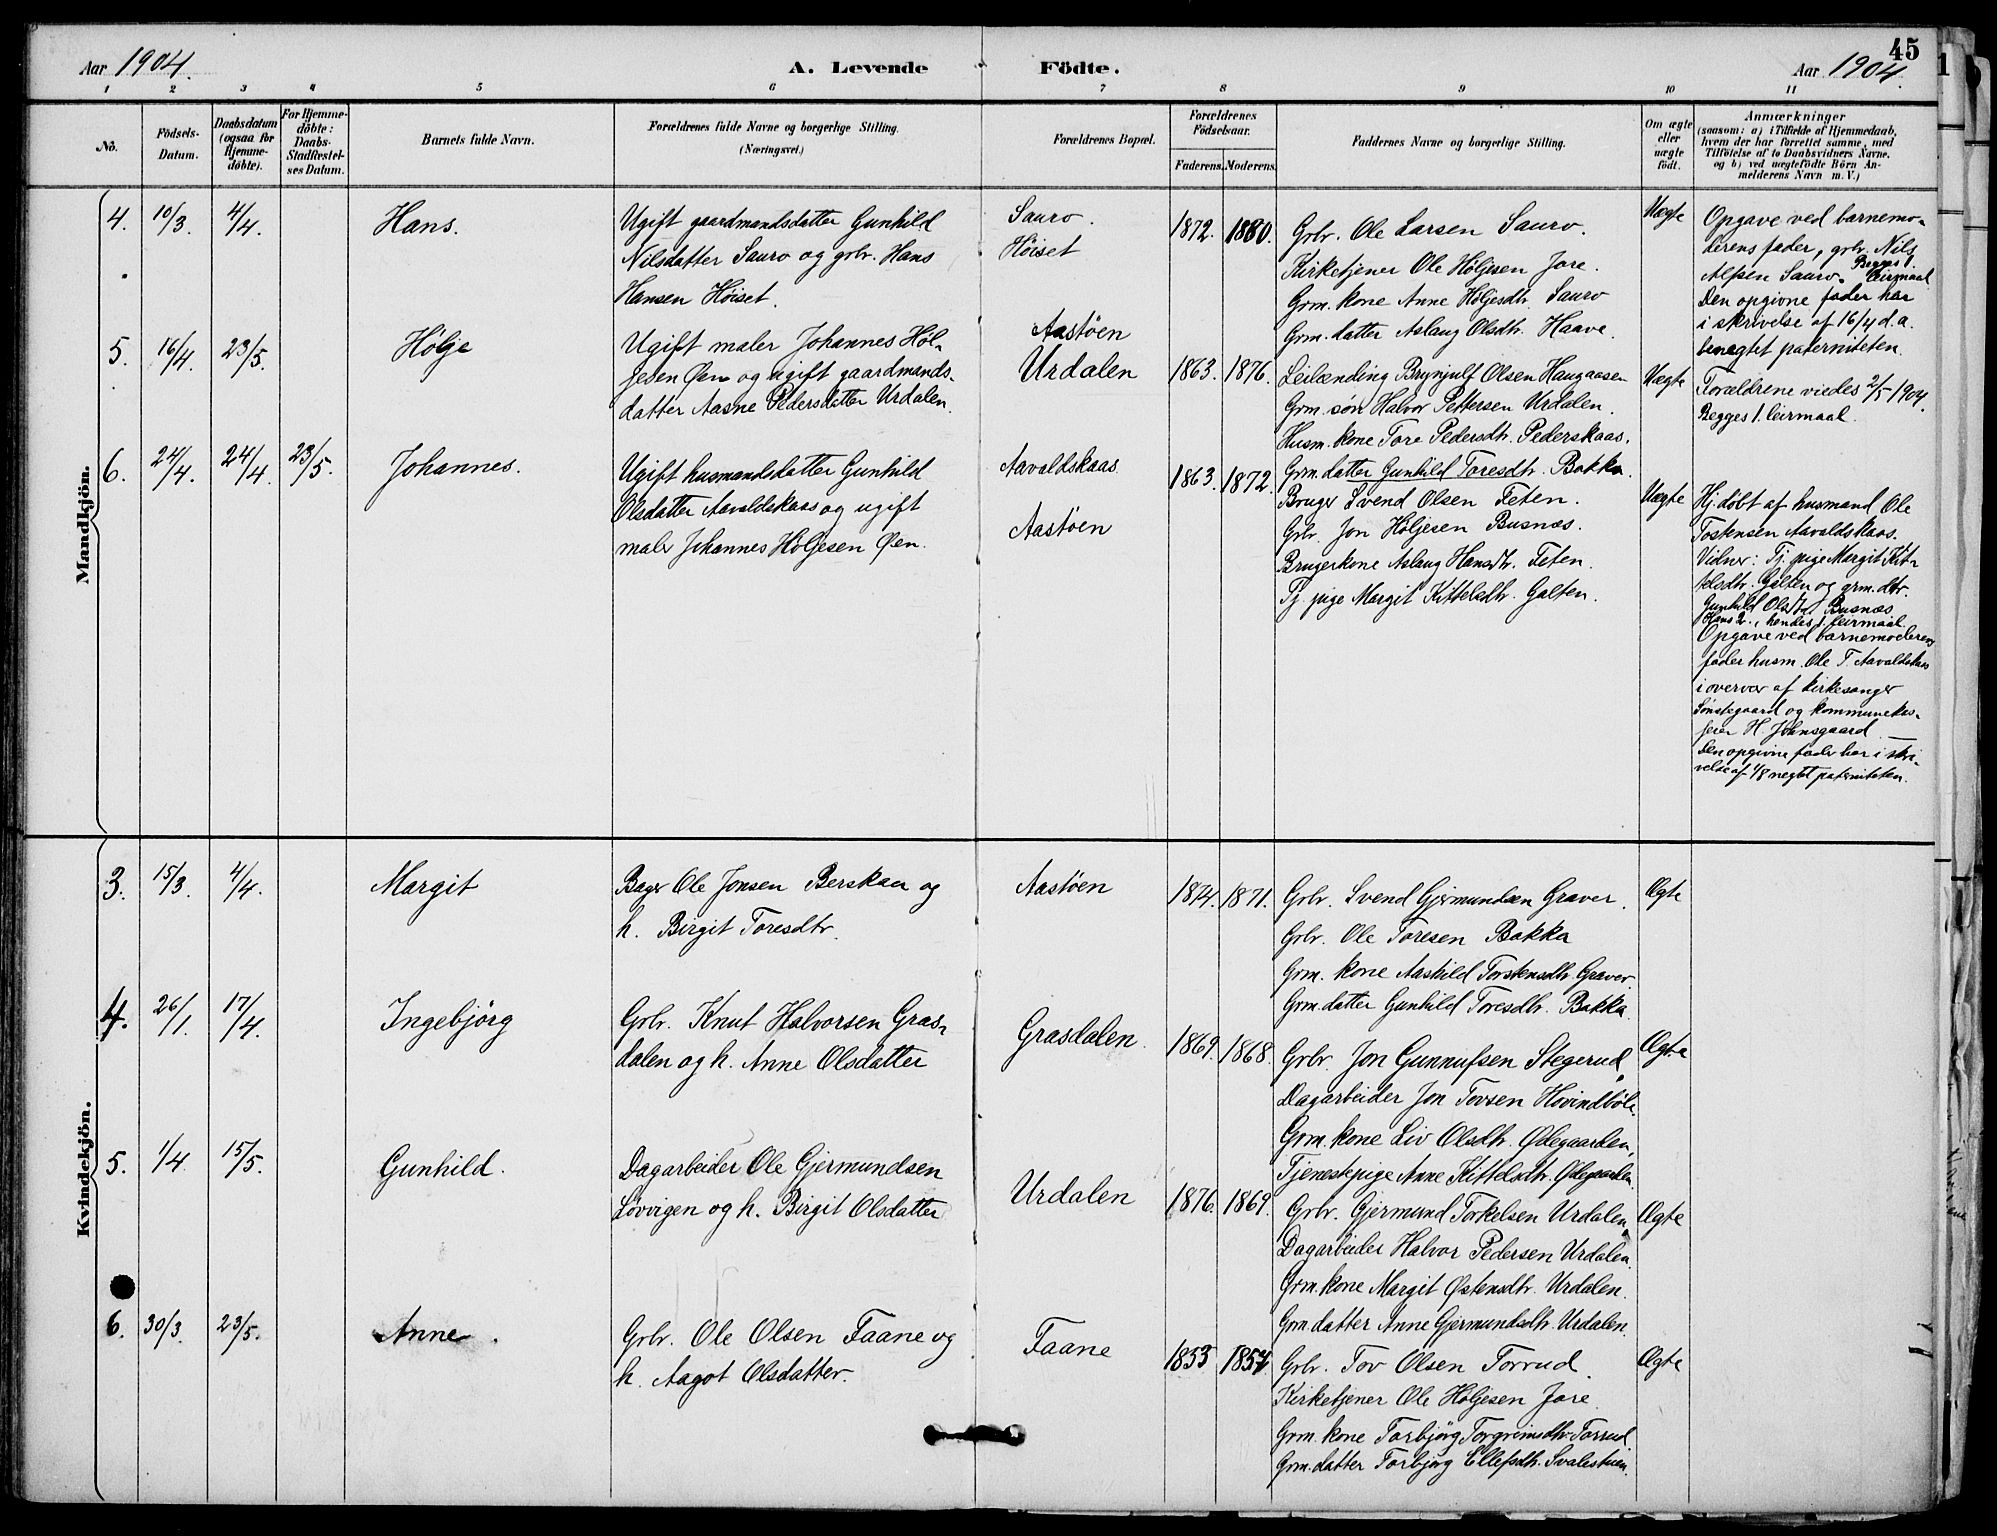 45
Aar 1904.
A. Levende Födte.
Aar 1904.
1 2 3 4 5 6 7 8 9 10 11
No.
Födsels-
Datum.
Daabsdatum
(ogsaa for
Hjemme-
döbte).
For Hjemme-
döbte:
Daabs-
Stadfæstel-
ses Datum.
Barnets fulde Navn.
Forældrenes fulde Navne og borgerlige Stilling.
(Næringsvei.)
Forældrenes Bopæl.
Forældrenes
Födselsaar.
Faderens. Moderens.
Faddernes Navne og borgerlige Stilling.
Om ægte
eller
uægte
födt.
Anmærkninger
(saasom: a) i Tilfælde af Hjemmedaab,
hvem der har forrettet samme, med
Tilföielse af to Daabsvidners Navne,
og b) ved uægtefödte Börn An-
melderens Navn m. V.)
Mandkjön.
4. 10/3. 4/4. Hans.
Ugift gaardmandsdatter Gunhild
Nilsdatter Sauro og grbr. Hans
Hansen Höiset.
Sauro.
Höiset
1872. 1880.
Grbr. Ole Larsen Sauro.
Kirketjener Ole Höljesen Jore.
Grm. kone Anne Höljesdtr. Sauro
Grm. datter Aslaug Olsdtr. Haave.
Uægte
Opgave ved barnemo-
derens fader, grbr. Nils
Alfsen Sauro. Begges 1.
leirmaal
Den opgivne fader har
i skrivelse af 16/4 d.a.
benegtet paterniteten.
5. 16/4. 23/5. Hölje
Ugift maler Johannes Höl-
jesen Øen og ugift gaardmands-
datter Aasne Pedersdatter Urdalen.
Aastöen
Urdalen
1863. 1876.
Leilænding Brynjulf Olsen Haugaasen
Grm. sön Halvor Pettersen Urdalen.
Husm. kone Tore Pedersdtr. Pederskaas.
Grm. datter Gunhild Toresdtr. Bakka.
Uægte
Forældrene viedes 2/5 1904.
Begges 1. leirmaal.
6. 24/4. 24/4. 23/5. Johannes.
Ugift husmandsdatter Gunhild
Olsdatter Aavaldskaas og ugift
maler Johannes Höljesen Øen.
Aavaldskaas
Aastöen
1863. 1872.
Bruger Svend Olsen Feten.
Grbr. Jon Höljesen Busnæs.
Brugerkone Aslaug Hansdtr. Feten.
Tj. pige Margit Kittelsdtr. Galten.
Uægte
Hj. döbt af husmand Ole
Tostensen Aavaldskaas.
Vidner: Tj. pige Margit Kit-
telsdtr. Galten og grm. dtr.
Gunhild Olsdtr. Busnæs
Hans 2., hendes 1. leirmaal.
Opgave ved barnemoderens
fader husm. Ole T. Aavaldskaas
i overvær af kirkesanger
Sönstegaard og kommunekas-
serer H. Johnsgaard. —
Den opgivne fader har i skri-
velse af 4/8 negtet paterniteten.
Kvindekjön.
3. 15/3. 4/4. Margit
Bager Ole Jonsen Berskaa og
h. Birgit Toresdtr.
Aastöen
1874. 1871.
Grbr. Svend Gjermundsen Graver.
Grbr. Ole Toresen Bakka
Grm. kone Aashild Torstensdtr. Graver.
Grm. datter Gunhild Toresdtr. Bakka.
Ægte
4. 26/1. 17/4. Ingebjörg
Grbr. Knut Halvorsen Gras-
dalen og h. Anne Olsdatter
Grasdalen.
1869. 1868.
Grbr. Jon Gunnufsen Stegerud.
Dagarbeider Jon Tovsen Hovindböle.
Grm. kone Liv Olsdtr. Ødegaarden,
Tjenestepige Anne Kittelsdtr. Ødegaarden.
Ægte
5. 1/4. 15/5. Gunhild.
Dagarbeider Ole Gjermundsen
Lövvigen og h. Birgit Olsdatter
Urdalen
1876. 1869.
Grbr. Gjermund Torkelsen Urdalen.
Dagarbeider Halvor Pedersen Urdalen.
Grm. kone Margit Østensdtr. Urdalen.
Grm. datter Anne Gjermundsdtr. Urdalen.
Ægte
6. 30/3. 23/5. Anne.
Grbr. Ole Olsen Faane og
h. Aagot Olsdatter.
Faane
1853 1857
Grbr. Tov Olsen Torrud.
Kirketjener Ole Höljesen Jore.
Grm. kone Torbjörg Torgrimsdtr. Torrud.
Grm. datter Torbjörg Ellefsdtr. Svalestuen.
Ægte